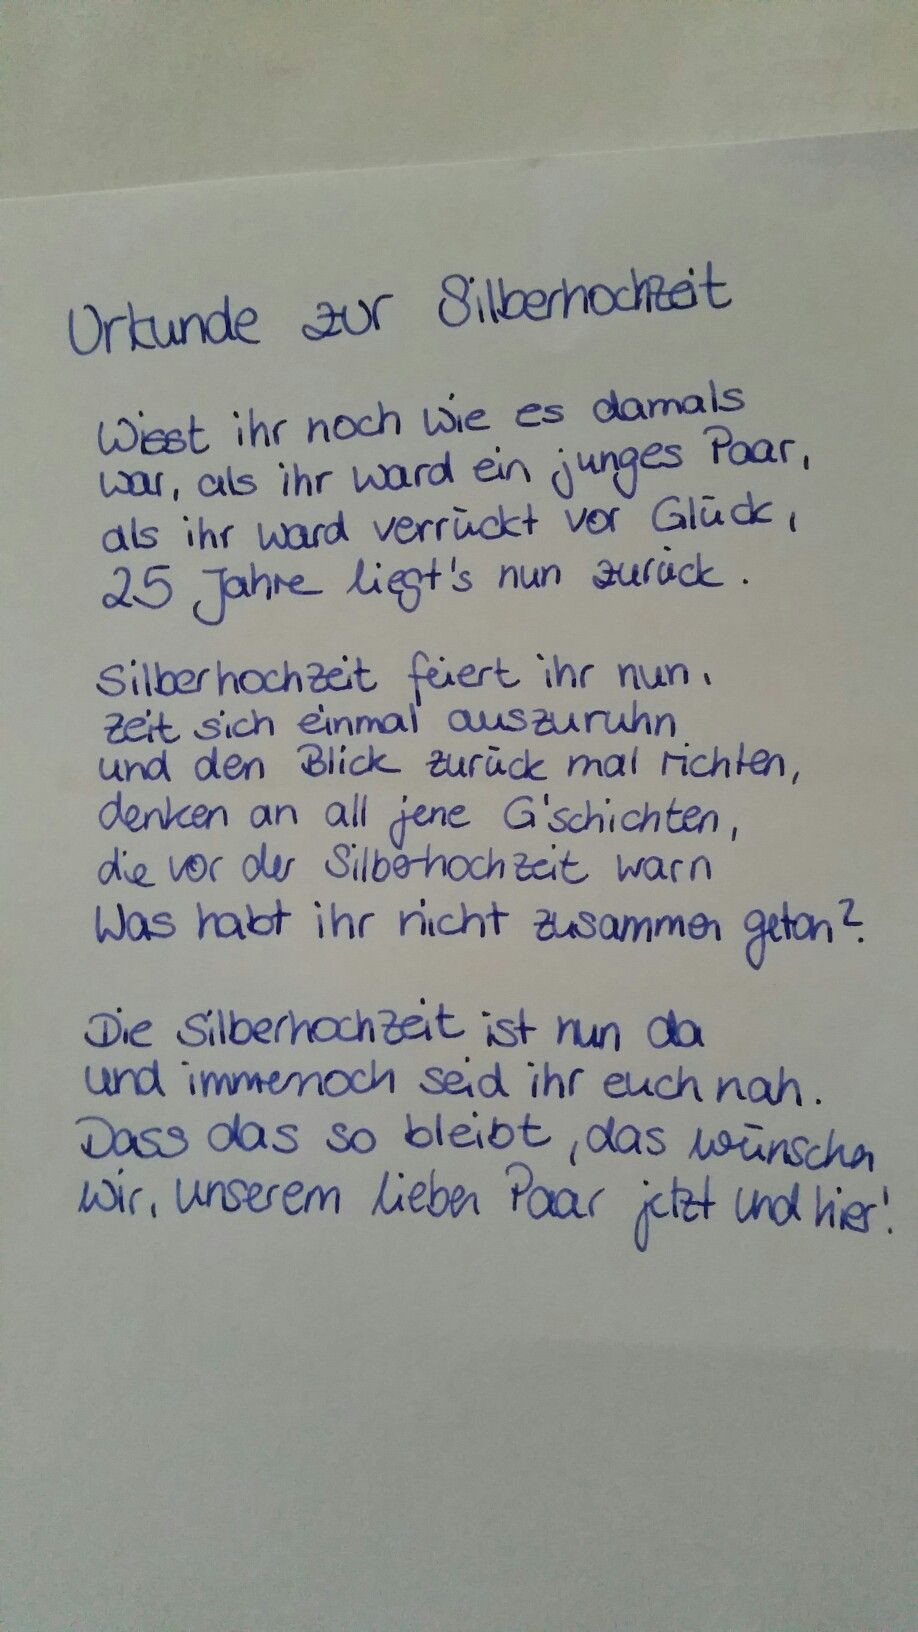 Urkunde zur Silberhochzeit
Wisst ihr noch wie es damals
war, als ihr ward ein junges Paar,
als ihr ward verrückt vor Glück,
25 Jahre liegt's nun zurück.
Silberhochzeit feiert ihr nun.
Zeit sich einmal auszuruhn
und den Blick zurück mal richten,
denken an all jene G'schichten,
die vor der Silberhochzeit warn
Was habt ihr nicht zusammen getan?
Die Silberhochzeit ist nun da
und immernoch seid ihr euch nah.
Dass das so bleibt, das wünschen
wir, unserem lieben Paar jetzt und hier!